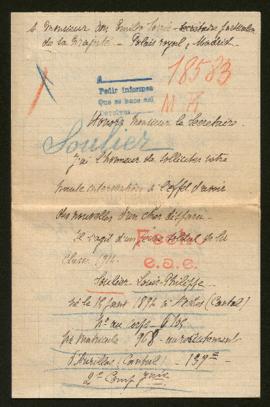 à Monsieur don Emilio Secrétaire particulier
de Sa Majesté - Palais royal, Madrid.
A
18583
Pedir informes
Que se hace así
M A
Honoré Monsieur le Secrétaire.
Soulier
J'ai l'honneur de solliciter votre
haute intervention à l'effet d'avoir
des nouvelles d'un cher disparu.
Il s'agit d'un jeune soldat de la
Classe 1914.
Fecha
e.s.e.
Soulier Louis Philippe
né le 15 1894 à (Cantal)
No au corps
No matricule 968 - recrutement
d'Aurillac (Cantal) - 139me
2e Comp